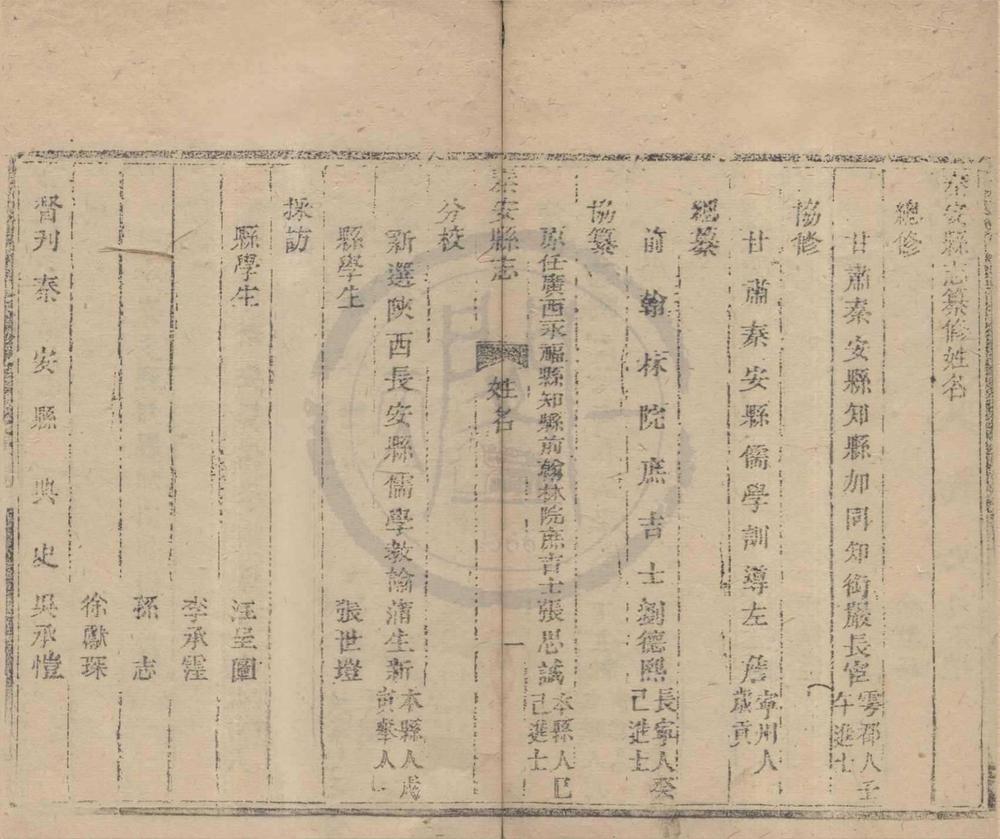 秦安縣志纂修姓名
總修
甘肅秦安縣知縣加同知銜嚴長宦雩都人壬午進士
協修
甘肅秦安縣儒學訓導左 寧州人歲貢
總纂
前翰林院庶吉士劉德熙長寧人癸己進士
協纂
原任廣西永福縣知縣前翰林院庶吉士張思誠本縣人己己進士
秦安縣志 姓名 一
分校
新選陝西長安縣儒學教諭蒲生新本縣人戌寅舉人
縣學生 張世塏
採訪
縣學生 汪呈圖
李承霔
孫志
徐獻琛
督刊秦安縣典史 吳承愷